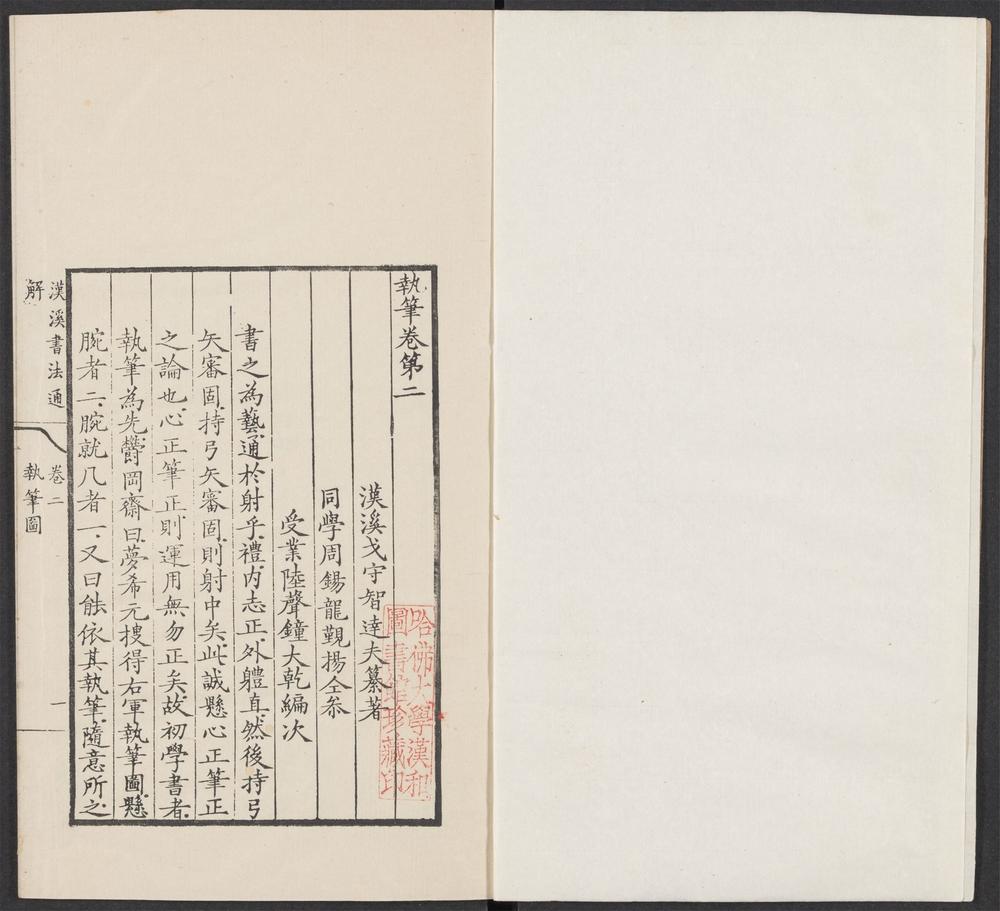 執筆卷第二
漢溪戈守智達夫纂著
同學周錫龍覲揚仝叅
受業陸聲鐘大乾編次
書之為藝通於射乎禮内志正外軆直然後持弓
矢審固持弓矢審固則射中矣此誠懸心正筆正
之論也心正筆正則運用無勿正矣故初學書者
執筆為先欝岡齋曰夢希元搜得右軍執筆圖懸
腕者二腕就几者一又曰能依其執筆隨意所之
漢溪書法通解
卷二
執筆圖
一
哈佛大學漢和圖書館珍藏印